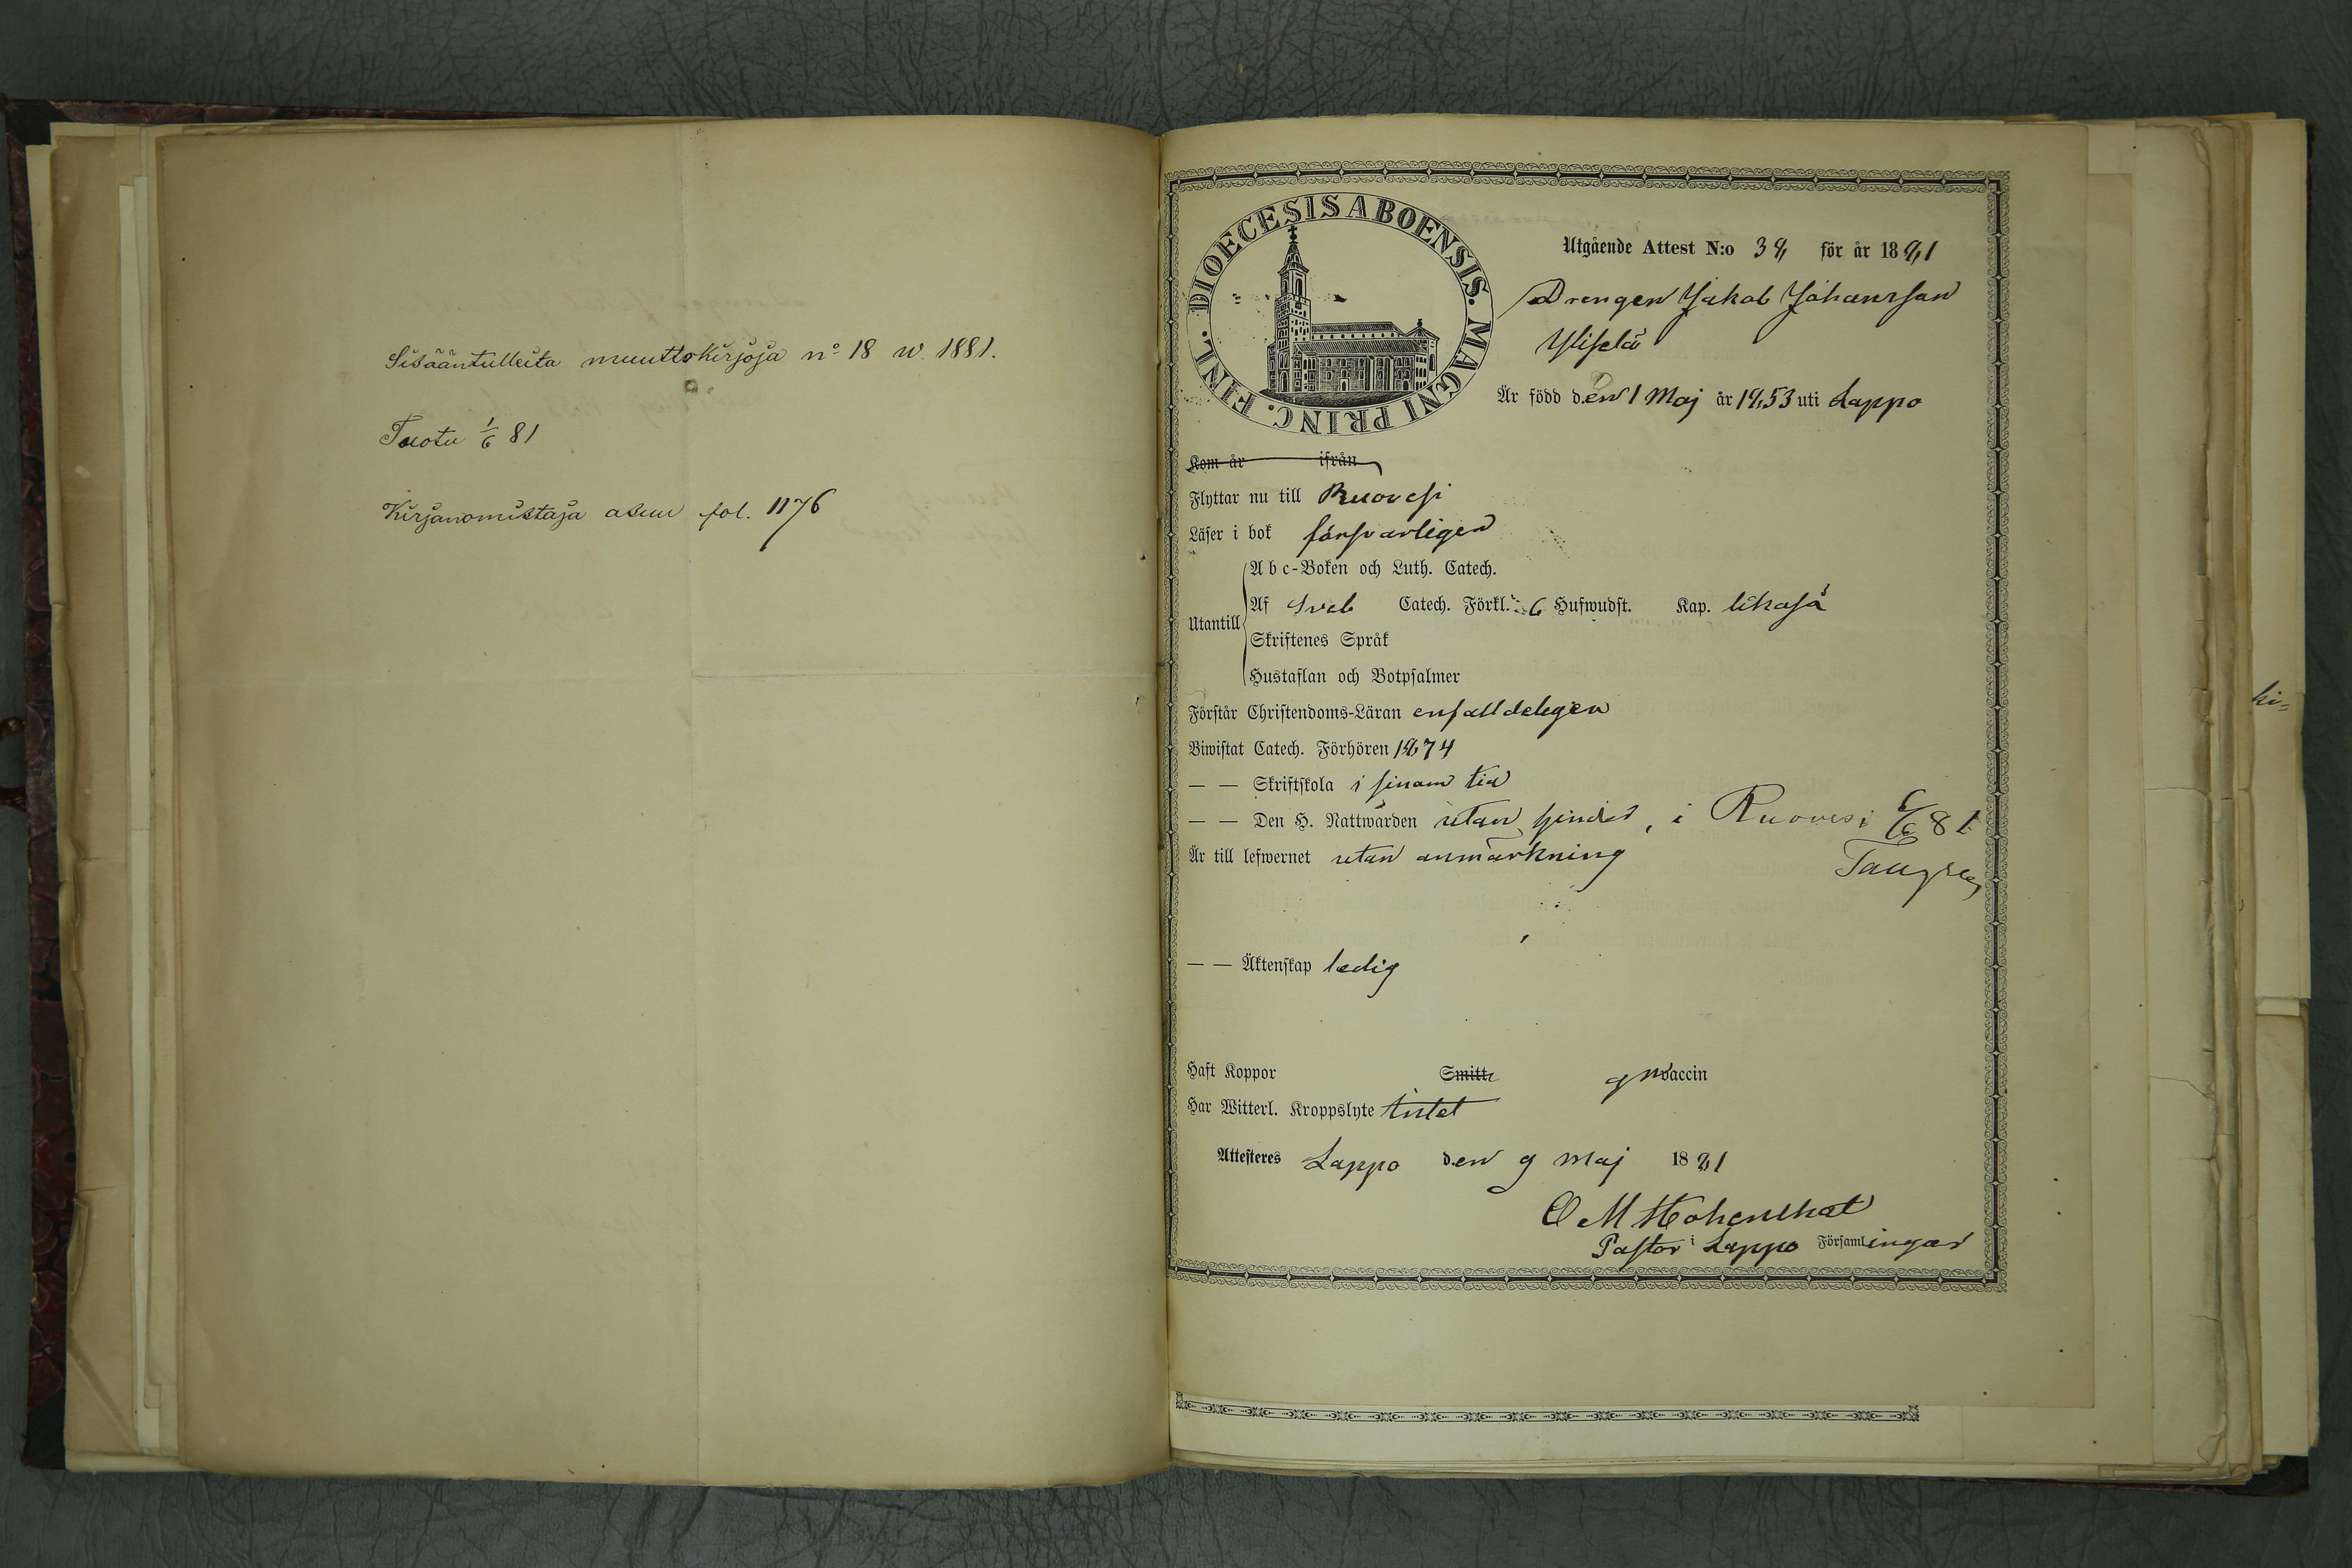 Sisääntulleita muuttokirjoja nº 18 w. 1881.
Tuotu 1/6 81
Kirjanomistaja asuu fol. 1176
DIOECESIS ABOENSIS. MAGNI PRINC. FINL.
Utgående Attest N:o 38, för år 1881
Drengen Jakob Johansson
Yliselä
Är född den 1 Maj år 1853 uti Lappo
Kom år ifrån
Flyttar nu till Ruovesi
Läser i bok försvarligen
Abc-Boken och Luth. Catech.
Utantill
Af Sveb Catech. Förkl. 6 Hufwudst. Kap. likaså
Skriftenes Språk
Hustaflan och Botpsalmer
Förstår Christendoms-Läran enfalldeligen
Biwistat Catech. Förhören 1874
— — Skriftskola i sinom tid
— — Den H. Nattwarden utan hinder, i Ruovesi 6/6 81
Är till lefwernet utan anmärkning
— — Äktenskap ledig
Haft Koppor Smitt g m vaccin
Har Witterl. Kroppslyte intet
Attesteres Lappo den 9 Maj 1881
O M Hohenthal
Pastor i Lappo Församlingar
ki=